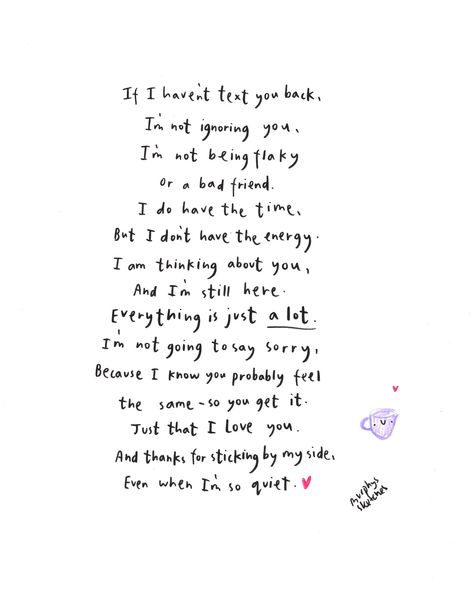 If I haven't text you back,
I'm not ignoring you,
I'm not being flaky
or a bad friend.
I do have the time,
But I don't have the energy.
I am thinking about you,
And I'm still here.
Everything is just a lot.
I'm not going to say sorry,
Because I know you probably feel
the same - so you get it.
Just that I love you.
And thanks for sticking by my side,
Even when I'm so quiet.
Murphys
sketches